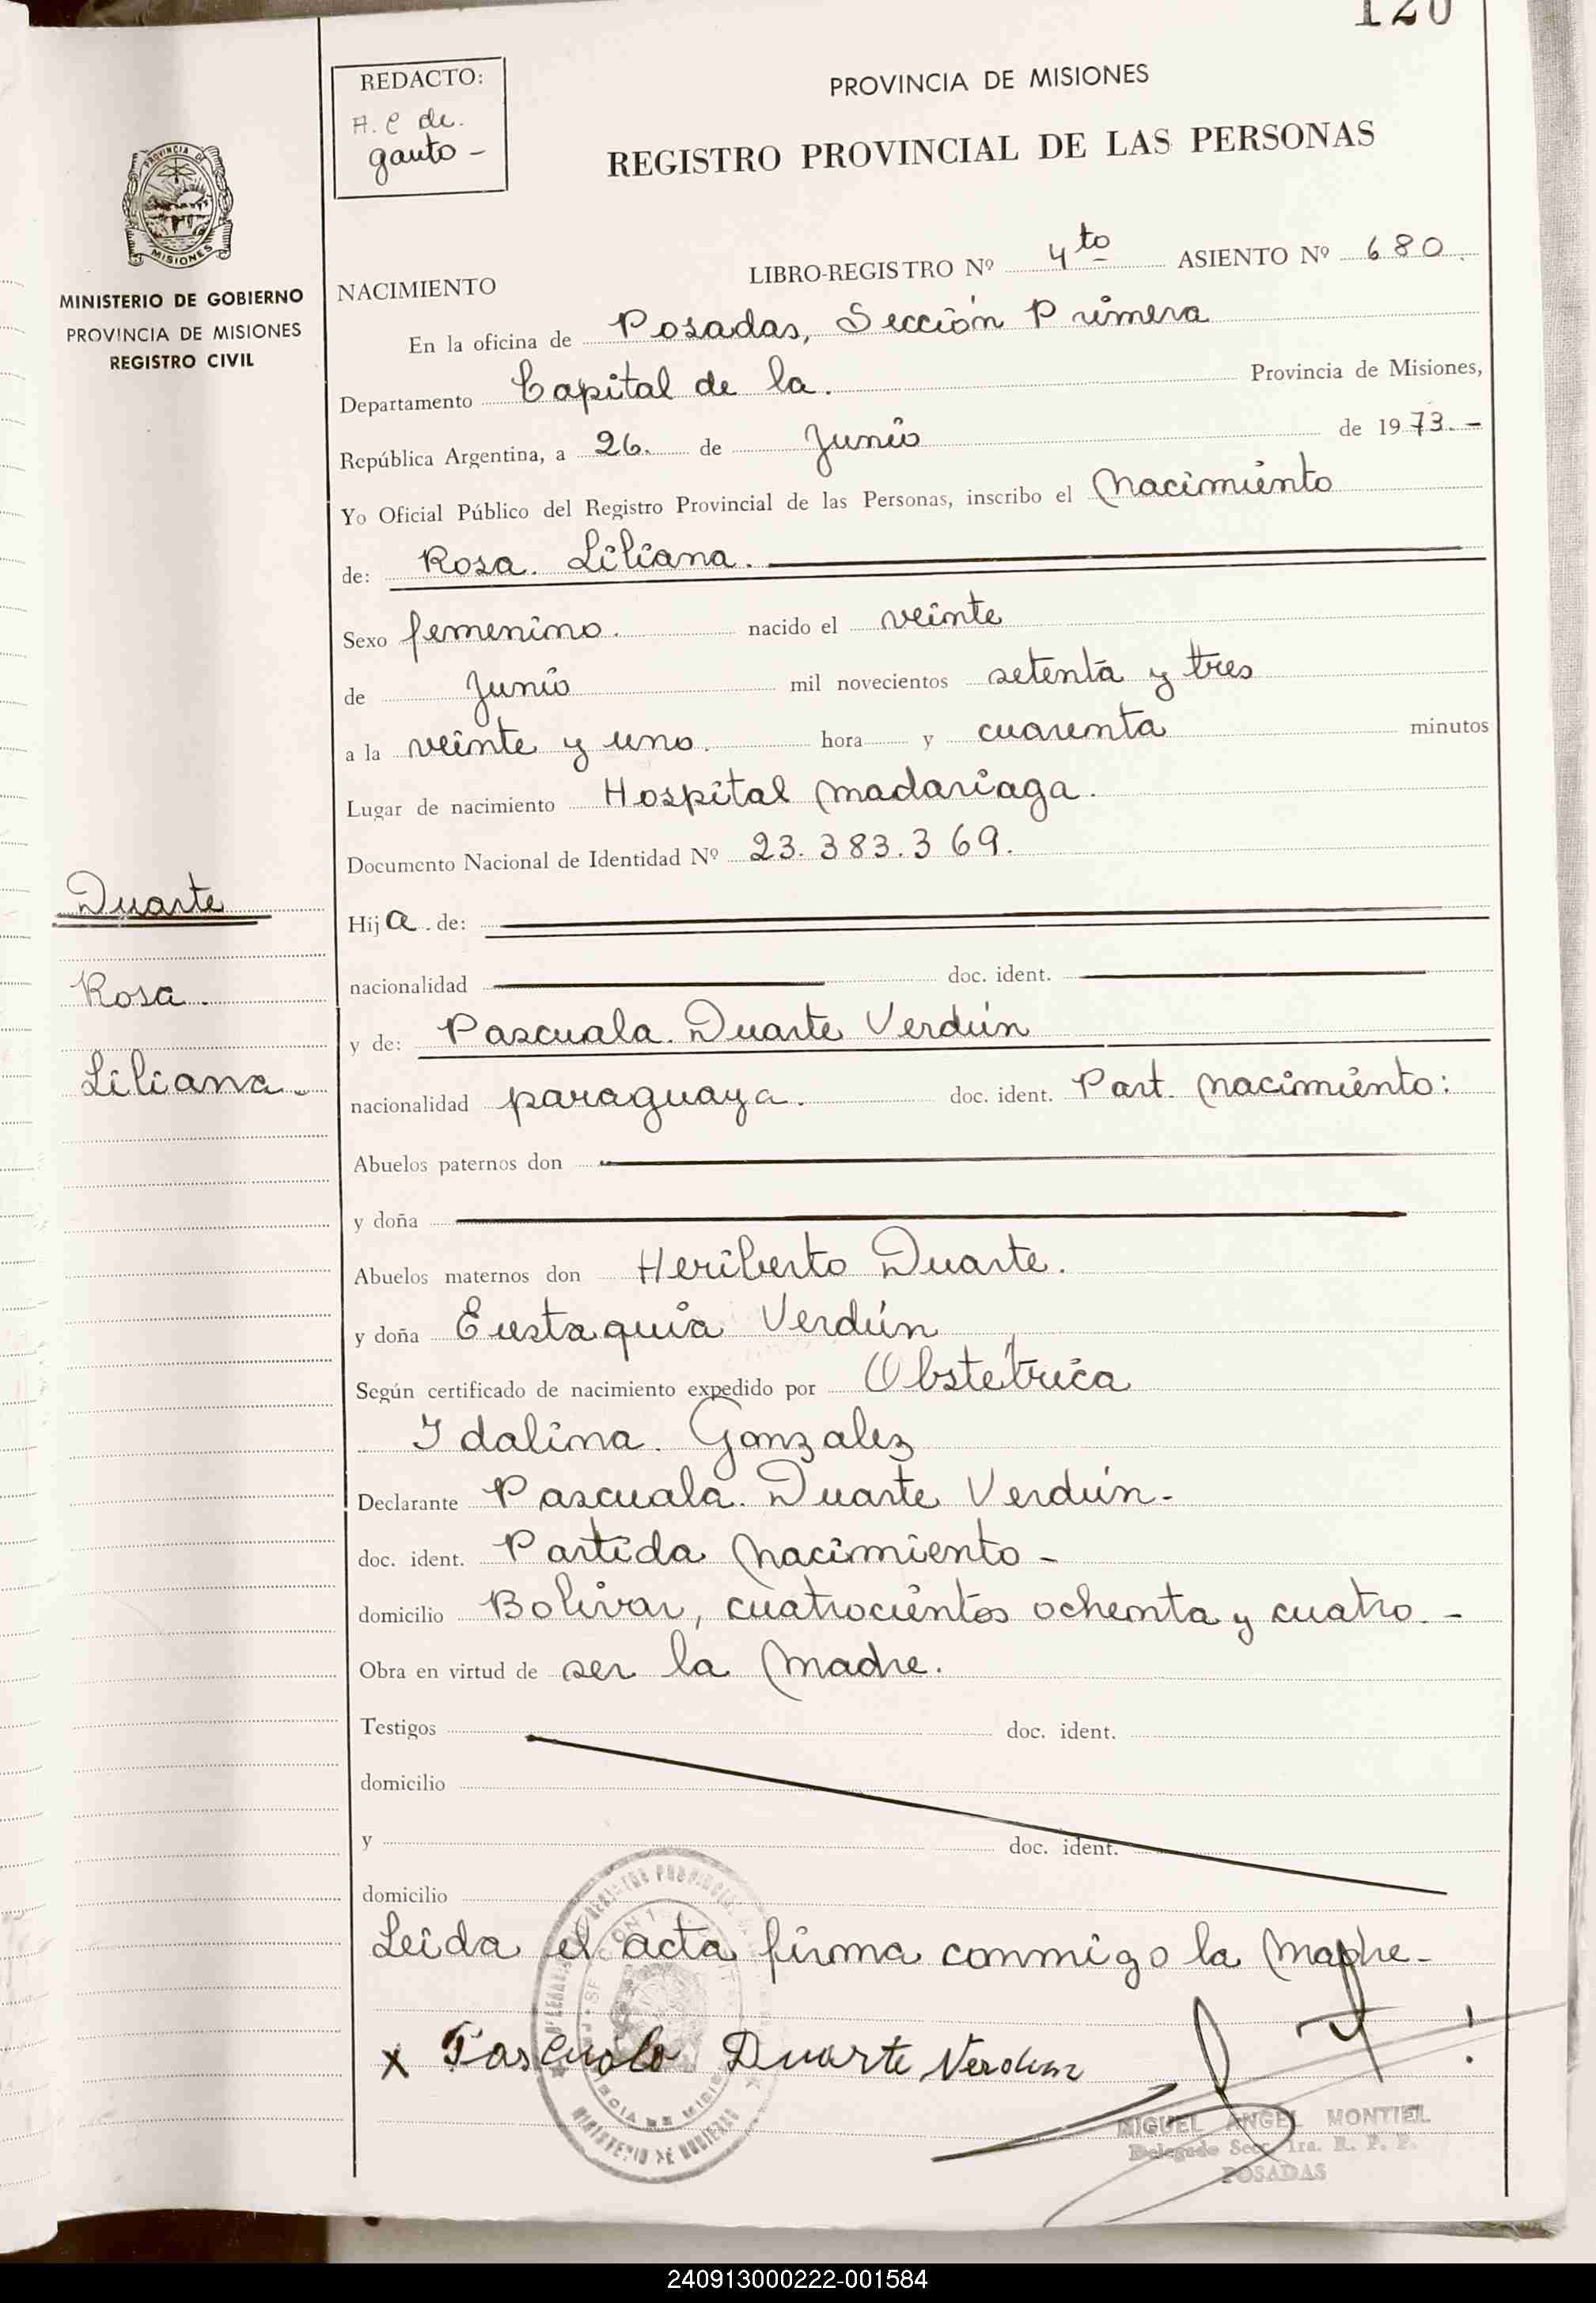 120
REDACTO:
A. C de.
gauto -
PROVINCIA DE MISIONES
REGISTRO PROVINCIAL DE LAS PERSONAS
PROVINCIA DE
MISIONES
MINISTERIO DE GOBIERNO
PROVINCIA DE MISIONES
REGISTRO CIVIL
NACIMIENTO LIBRO-REGISTRO Nº 4to ASIENTO Nº 680.
En la oficina de Posadas, Sección Primera
Departamento Capital de la. Provincia de Misiones,
República Argentina, a 26. de Junio de 1973.-
Yo Oficial Público del Registro Provincial de las Personas, inscribo el Nacimiento
de: Rosa. Liliana.
Sexo femenino. nacido el veinte
de Junio mil novecientos setenta y tres
a la veinte y uno. hora y cuarenta minutos
Lugar de nacimiento Hospital Madariaga.
Documento Nacional de Identidad Nº 23.383.369.
Duarte
Rosa.
Liliana.
Hija. de:
nacionalidad doc. ident.
y de: Pascuala. Duarte Verdún
nacionalidad paraguaya. doc. ident. Part. Nacimiento:
Abuelos paternos don
y doña
Abuelos maternos don Heriberto Duarte.
y doña Eustaquia Verdún
Según certificado de nacimiento expedido por Obstetrica
Idalina. Gonzalez
Declarante Pascuala. Duarte Verdún-
doc. ident. Partida Nacimiento-
domicilio Bolivar, cuatrocientos ochenta y cuatro.-
Obra en virtud de ser la Madre.
Testigos doc. ident.
domicilio
y doc. ident.
domicilio
Leida el acta firma conmigo la Madre-
x Pascuala Duarte Verdun
MIGUEL ANGEL MONTIEL
Delegado Secc. 1ra. R. P. P.
POSADAS
240913000222-001584